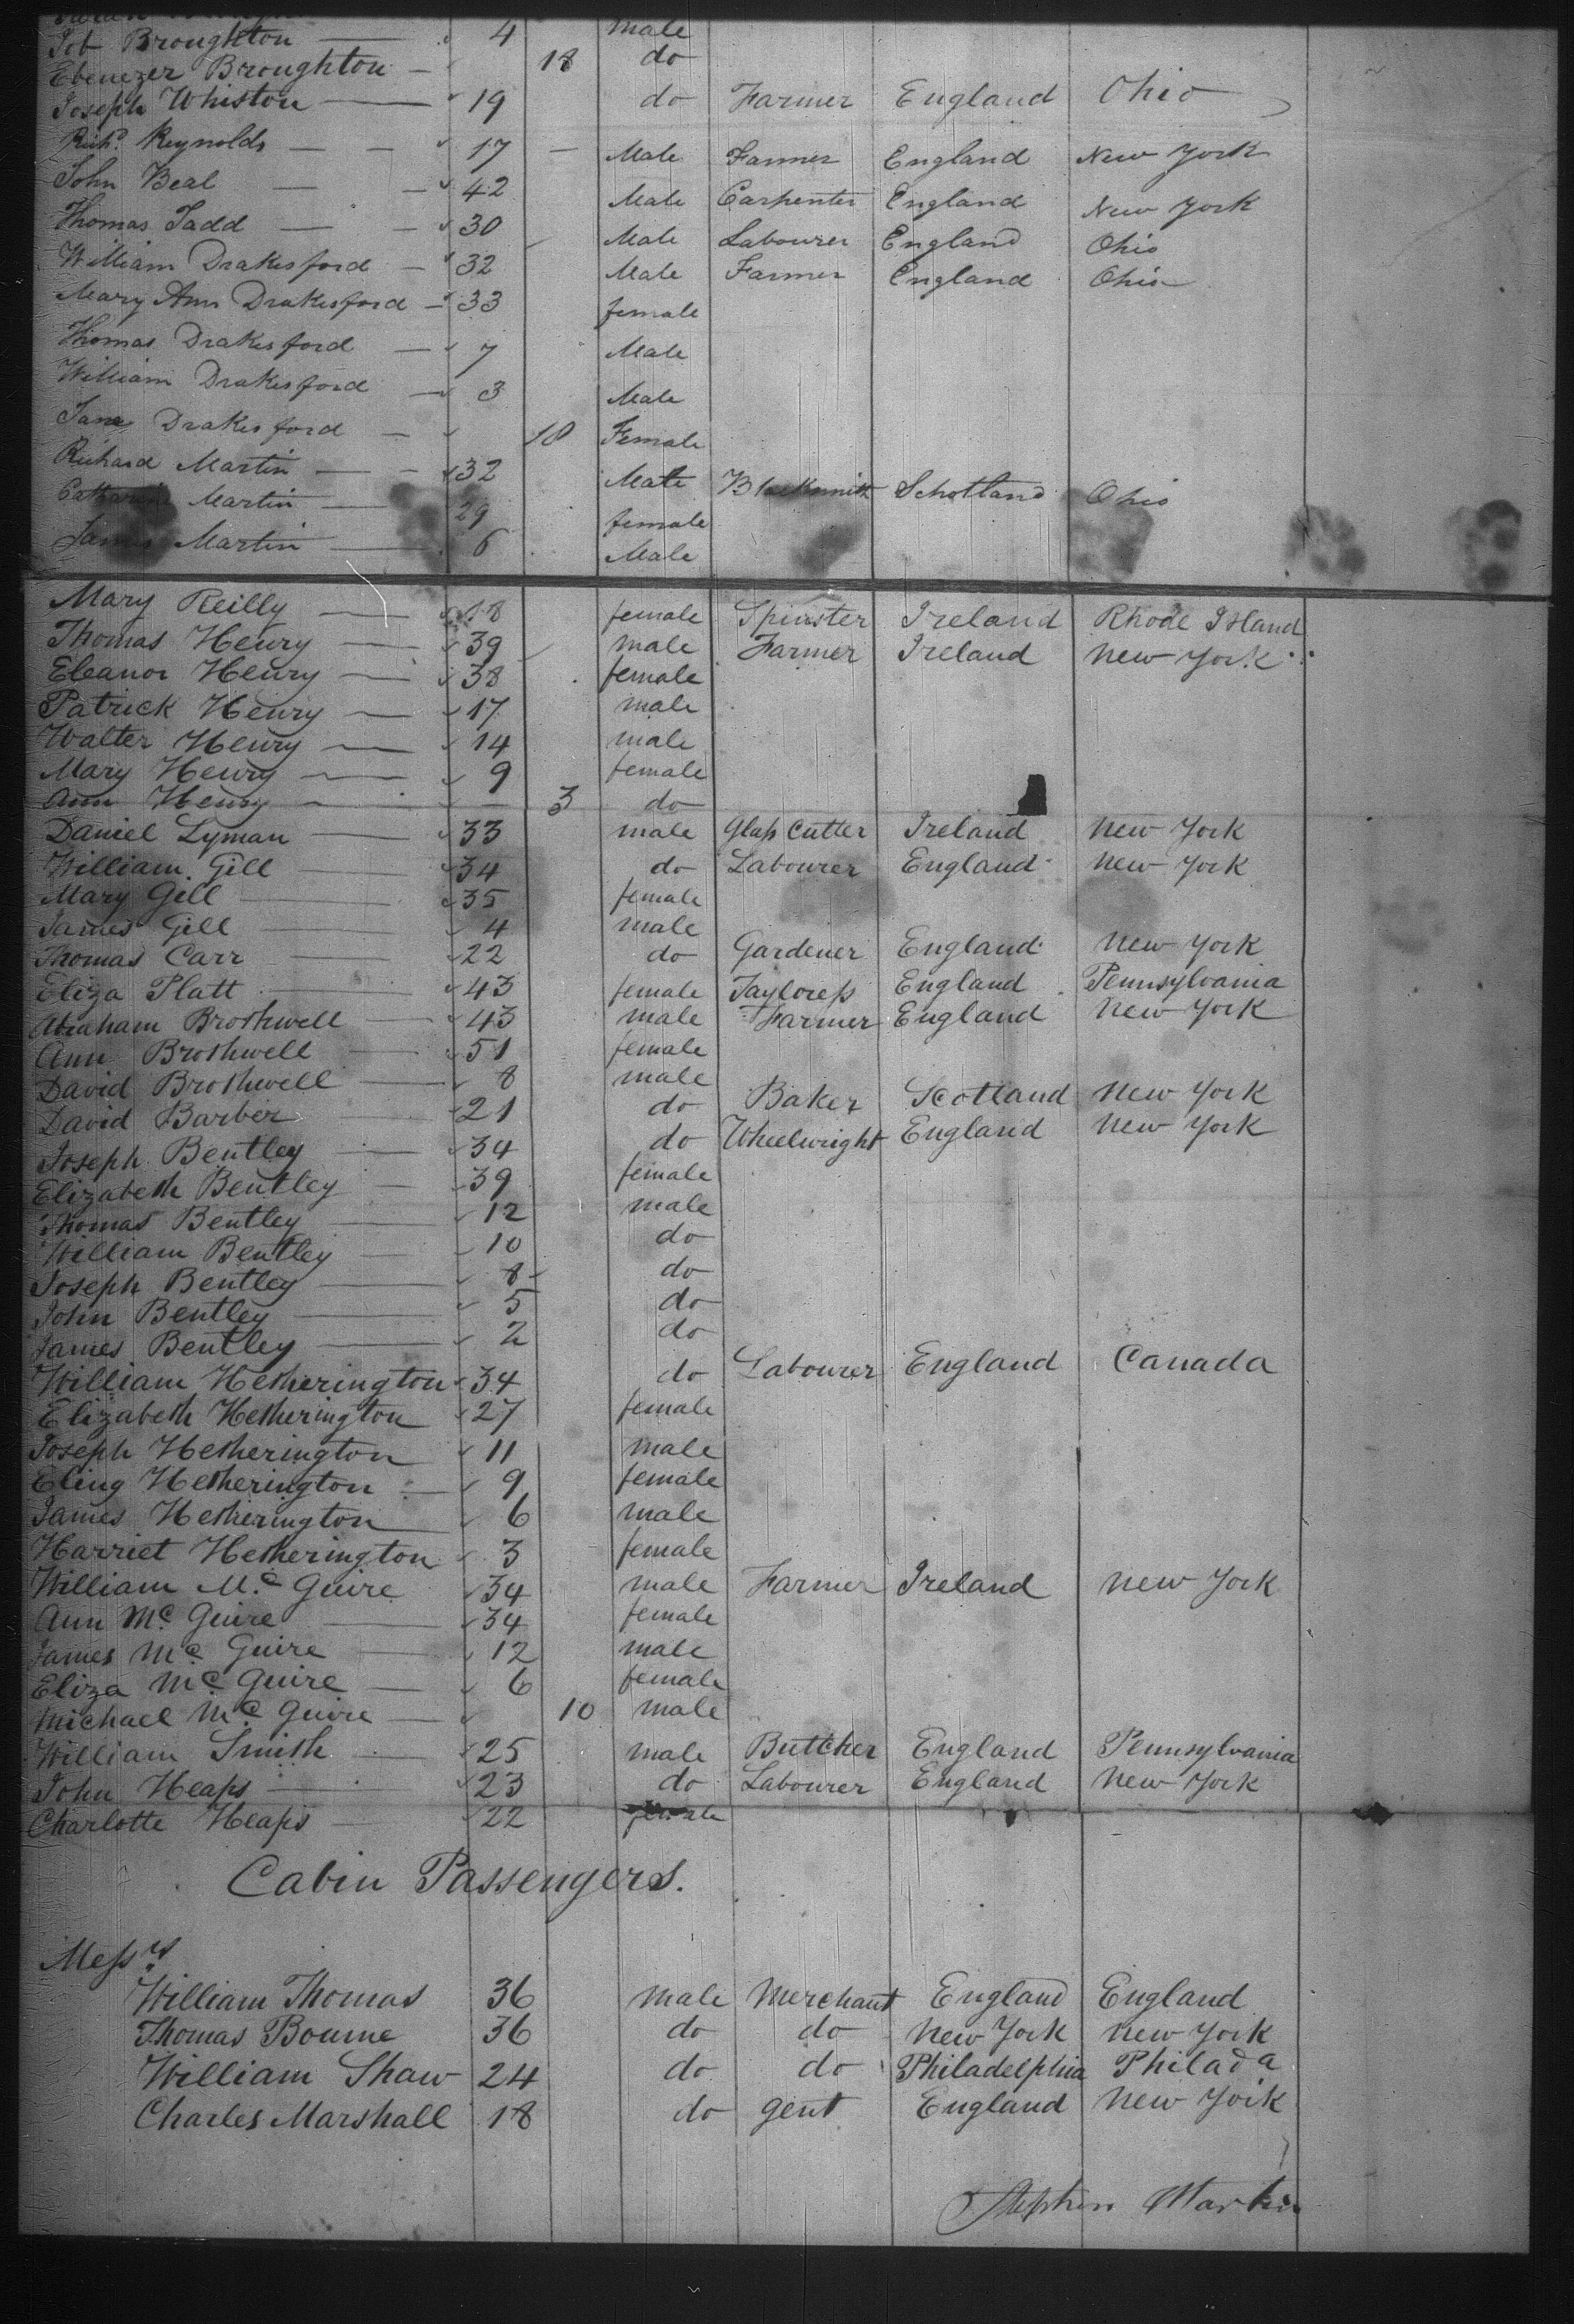 Job Broughton 4 male
Ebenezer Broughton 18 do
Joseph Whiston 19 do Farmer England Ohio
Richd. Reynolds 17 Male Farmer England New York
John Beal 42 Male Carpenter England New York
Thomas Tadd 30 Male Labourer England Ohio
William Drakesford 32 Male Farmer England Ohio
Mary Ann Drakesford 33 female
Thomas Drakesford 7 Male
William Drakesford 3 Male
Jane Drakesford 10 Female
Richard Martin 32 Male Blacksmith Schotland Ohio
Catharine Martin 29 female
James Martin 6 Male
Mary Reilly 18 female Spinster Ireland Rhode Island
Thomas Henry 39 male Farmer Ireland New York
Eleanor Henry 38 female
Patrick Henry 17 male
Walter Henry 14 male
Mary Henry 9 female
Ann Henry 3 do
Daniel Lyman 33 male Glass Cutter Ireland New York
William Gill 34 do Labourer England New York
Mary Gill 35 female
James Gill 4 male
Thomas Carr 22 do Gardener England New York
Eliza Platt 43 female Tayloress England Pennsylvania
Abraham Brothwell 43 male Farmer England New York
Ann Brothwell 51 female
David Brothwell 8 male
David Barber 21 do Baker Scotland New York
Joseph Bentley 34 do Wheelwright England New York
Elizabeth Bentley 39 female
Thomas Bentley 12 male
William Bentley 10 do
Joseph Bentley 8 do
John Bentley 5 do
James Bentley 2 do
William Hetherington 34 do Labourer England Canada
Elizabeth Hetherington 27 female
Joseph Hetherington 11 male
Eling Hetherington 9 female
James Hetherington 6 male
Harriet Hetherington 3 female
William Mc Guire 34 male Farmer Ireland New York
Ann Mc Guire 34 female
James Mc Guire 12 male
Eliza Mc Guire 6 female
Michael Mc Guire 10 male
William Smith 25 male Butcher England Pennsylvania
John Heaps 23 do Labourer England New York
Charlotte Heaps 22 female
Cabin Passengers.
Messrs
William Thomas 36 male Merchant England England
Thomas Bourne 36 do do New York New York
William Shaw 24 do do Philadelphia Philada
Charles Marshall 18 do gent England New York
Stephen Martin